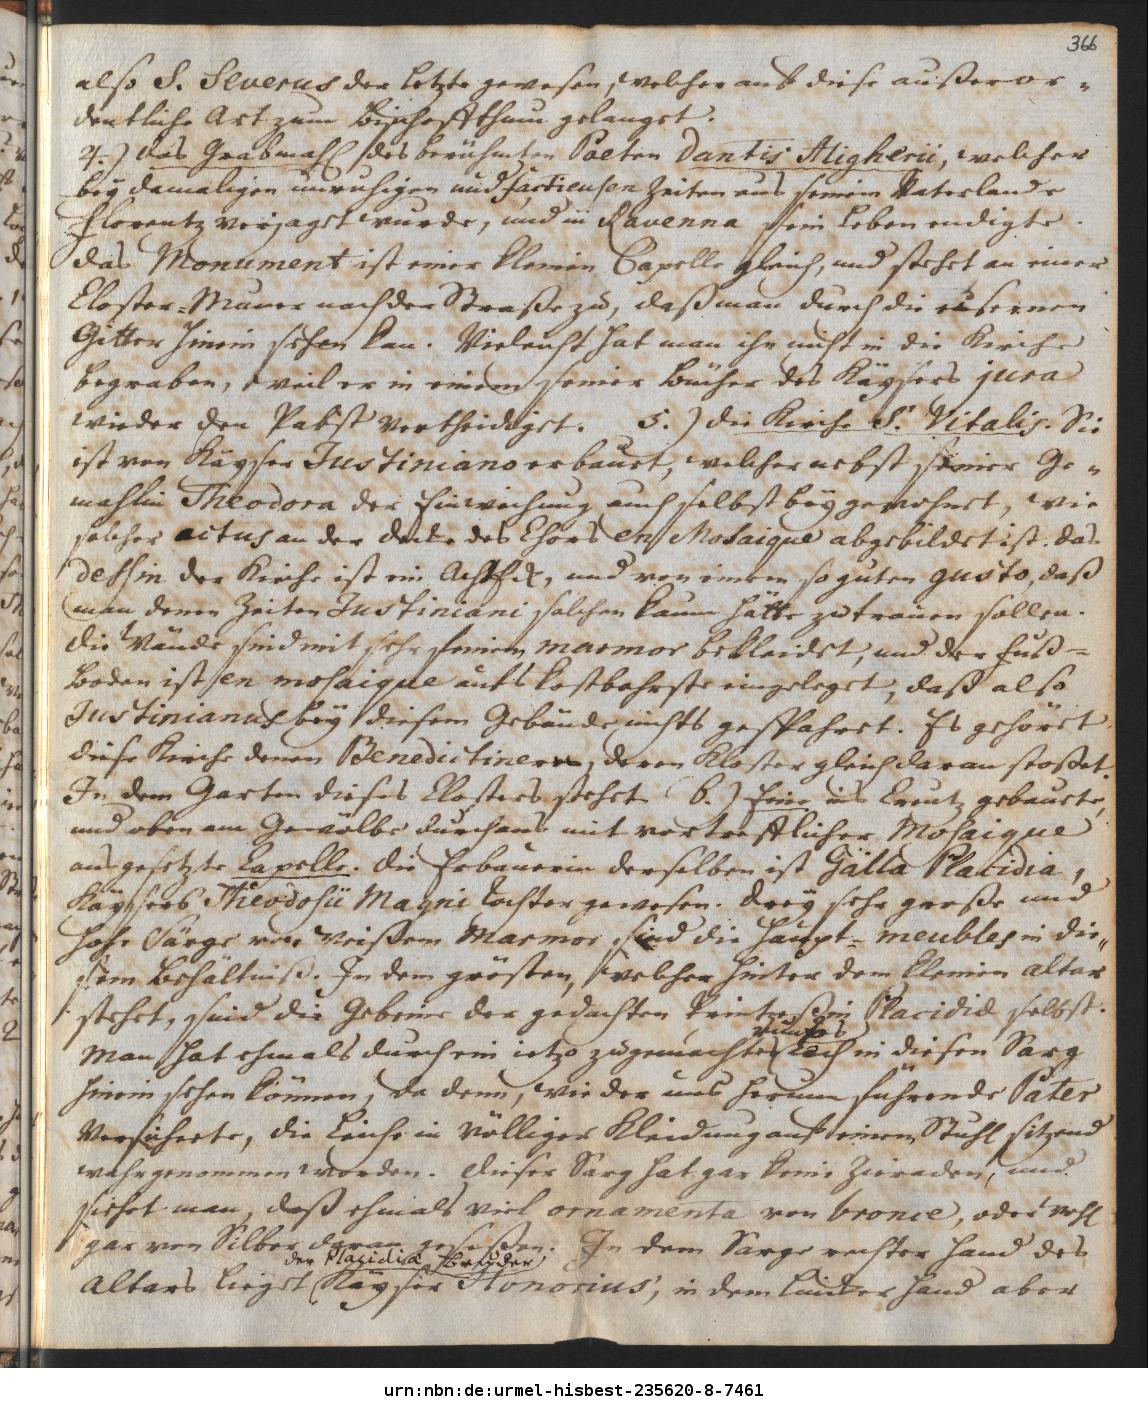 366
also S. Severus der letzte gewesen, welcher auf diese außeror-
dentliche Art zum Bischoffthum gelanget.
4.) das Grabmahl des berühmten Poeten Dantis Aligherii, welcher
bey damaligen unruhigen und factieusen Zeiten aus seinem Vaterlande
Florentz verjaget wurde, und in Ravenna sein Leben endigte.
Das Monument ist einer kleinen Capelle gleich, und stehet an einer
Closter-Mauer nach der Straße zu, daß man durch die eisernen
Gitter hinein sehen kan. Vieleicht hat man ihn nicht in die Kirche
begraben, weil er in einem seiner Bücher des Käysers jura
wieder den Pabst vertheidiget. 5.) die Kirche S. Vitalis. Sie
ist von Käyser Justiniano erbauet, welcher nebst seiner Ge-
mahlin Theodora der Einweihung auch selbst beygewohnet, wie
solcher actus an der Decke des Chors en Mosaique abgebildet ist. Das
dessin der Kirche ist ein Achteck, und von einem so guten gusto, daß
man denen Zeiten Justiniani solchen kaum hätte zutrauen sollen.
Die Wände sind mit sehr feinem marmor bekleidet, und der Fuß-
Boden ist en mosaique aufs kostbahrste eingeleget, daß also
Justinianus bey diesem Gebäude nichts gespahret. Es gehöret
diese Kirche denen Benedictinern, deren Kloster gleich daran stoßet.
In dem Garten dieses Closters stehet 6.) Eine ins Creutz gebauete,
und oben am Gewölbe durchaus mit vortrefflicher Mosaique
ausgesetzte Capelle. Die Erbauerin derselben ist Galla Placidia,
Käysers Theodosii Magni Tochter gewesen. Drey sehr große und
hohe Särge von weißem Marmor sind die Haupt-meubles in die-
sem Behältniß. In dem grösten, welcher hinter dem kleinen altar
stehet, sind die Gebeine der gedachten Printzeßin Placidiæ selbst.
Man hat ehmals durch ein ietzo zugemachtes rundes Loch in diesen Sarg
hinein sehen können, da denn, wie der uns herum führende Pater
versicherte, die Leiche in völliger Kleidung auf einem Stuhl sitzend
wahrgenommen worden. Dieser Sarg hat gar keine Zieraden, und
siehet man, daß ehmals viel ornamenta von bronce, oder wohl
gar von Silber daran gesessen. In dem Sarge rechter Hand des
Altars lieget der Placidiæ Bruder Käyser Honorius, in dem lincker Hand aber
urn:nbn:de:urmel-hisbest-235620-8-7461